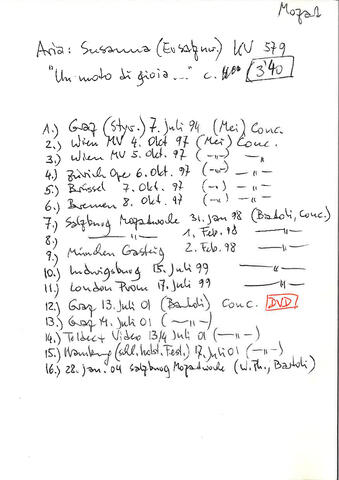 Mozart
Aria: Susanna (Ersatznr.) KV 579
"Un moto di gioia..." c. 3'40
1.) Graz (Styr.) 7. Juli 94 (Mei) Conc.
2.) Wien MV 4. Okt. 97 (Mei) Conc.
3.) Wien MV 5. Okt. 97 (—„—) —„—
4.) Zürich Oper 6. Okt. 97 (—„—) —„—
5.) Brüssel 7. Okt. 97 (—„—) —„—
6.) Bremen 8. Okt. 97 (—„—) —„—
7.) Salzburg Mozartwoche 31. Jan 98 (Bartoli, Conc.)
8.) —„— 1. Feb. 98 —„—
9.) München Gasteig 2. Feb. 98 —„—
10.) Ludwigsburg 15. Juli 99 —„—
11.) London Prom 17. Juli 99 —„—
12.) Graz 13. Juli 01 (Bartoli) Conc. DVD
13.) Graz 14. Juli 01 (—„—)
14.) Teldec + Video 13/14 Juli 01 (—„—)
15.) Hamburg (schl. holst. Fest.) 17. Juli 01 (—„—)
16.) 28. Jan. 04 Salzburg Mozartwoche (W. Ph., Bartoli)